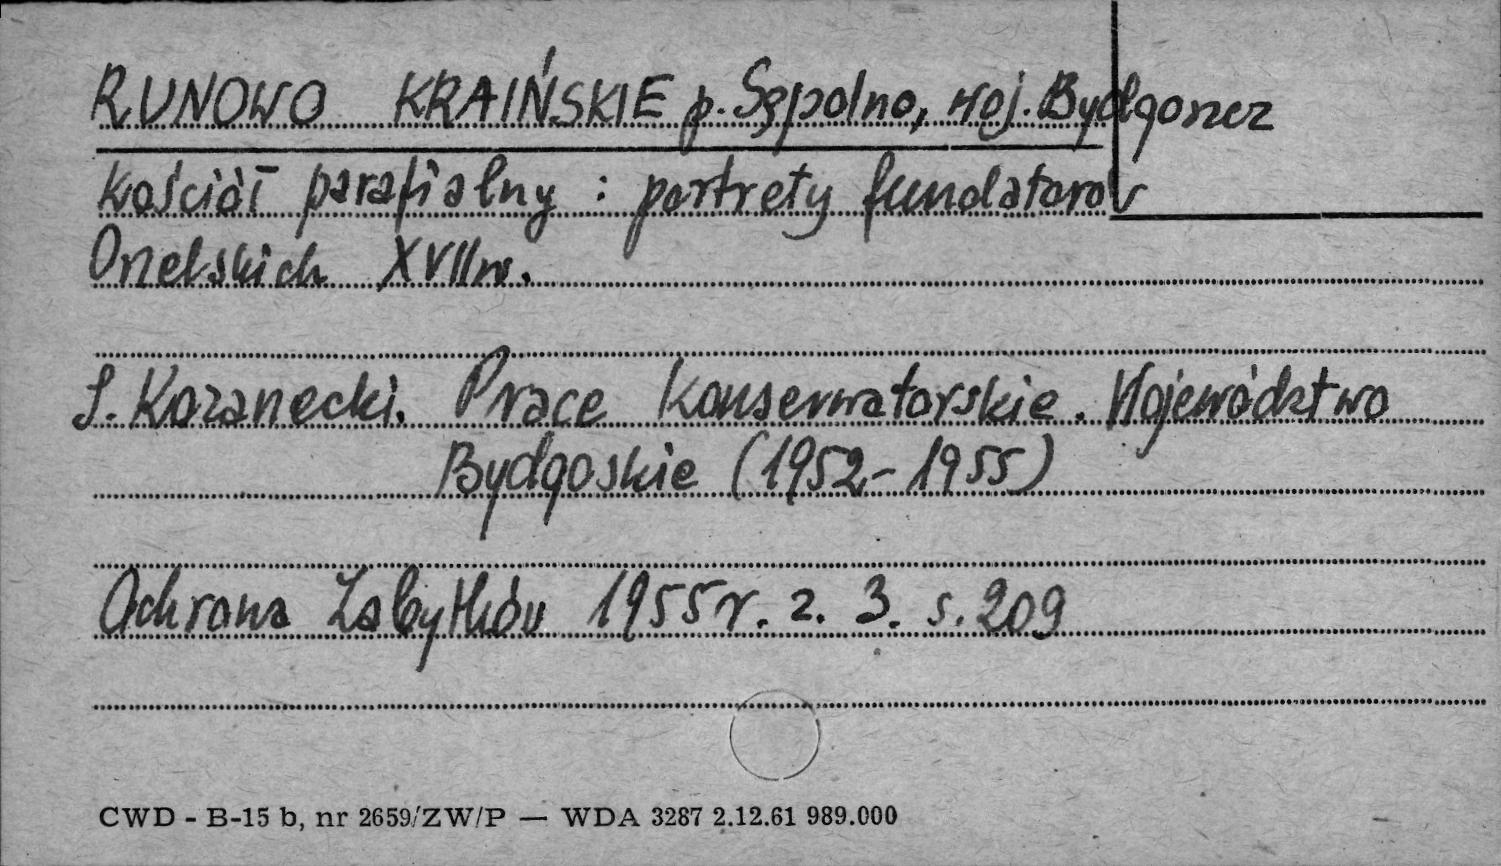 RUNOWO KRAIŃSKIE p. Sępolno, woj. Bydgoszcz
Kościół parafialny : portrety fundatorów
Orzelskich XVII w.
S. Kozanecki. Prace Konserwatorskie. Województwo
Bydgoskie (1952-1955)
Ochrona Zabytków 1955 r. z. 3. s. 209
CWD - B-15 b, nr 2659/ZW/P — WDA 3287 2.12.61 989.000